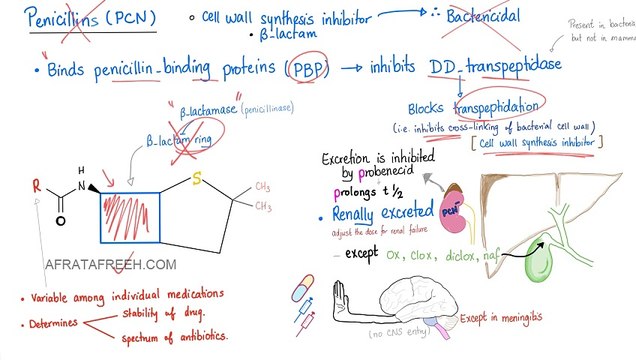 Penicillins (PCN)
◦ Cell wall synthesis inhibitor
∴ Bactericidal
• β-lactam
Present in bacteria
but not in mamma
• Binds penicillin-binding proteins (PBP) → inhibits DD-transpeptidase
"β-lactamase" (penicillinase)
Blocks transpeptidation
β-Lactam ring
(i.e. inhibits cross-linking of bacterial cell wall)
[Cell wall synthesis inhibitor]
Excretion is inhibited
by probenecid
prolongs t ½
R
H
N
S
CH3
CH3
O
PCN
• Renally excreted
adjust the dose for renal failure
- except Ox, Clox, diclox, naf
AFRATAFREEH.COM
• Variable among individual medications
• Determines
stability of drug.
spectrum of antibiotics.
(no CNS entry)
Except in meningitis